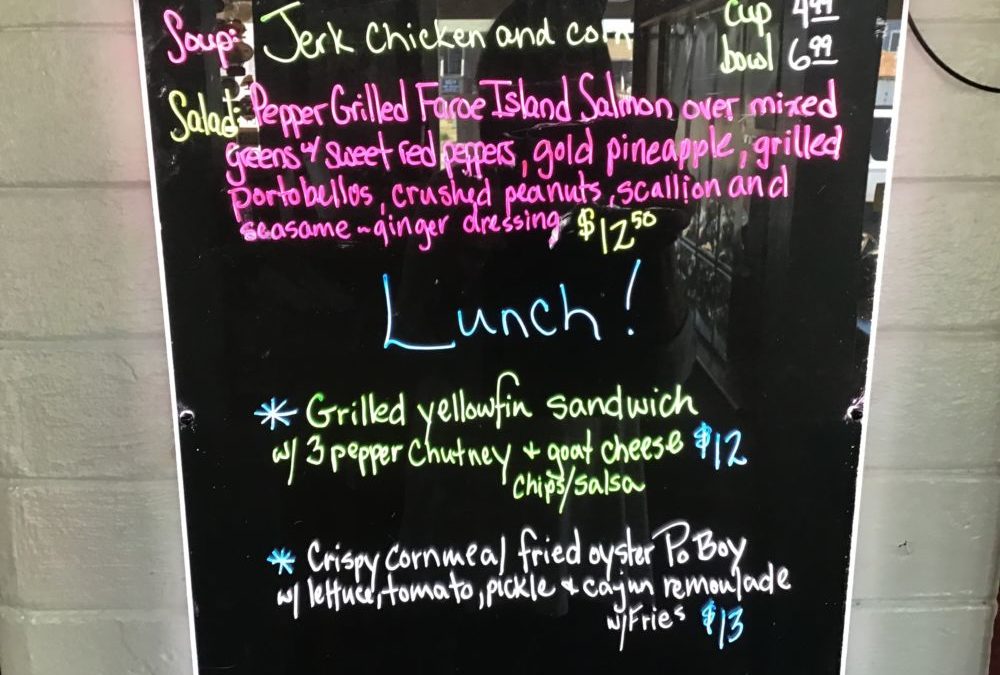 Soup: Jerk Chicken and corn cup 4.99
bowl 6.99
Salad: Pepper Grilled Faroe Island Salmon over mixed
greens w/ sweet red peppers, gold pineapple, grilled
portobellos, crushed peanuts, scallion and
seasame-ginger dressing $12.50
Lunch!
* Grilled yellowfin sandwich
w/ 3 pepper Chutney + goat cheese $12
Chips/salsa
* Crispy Cornmeal fried oyster Po Boy
w/ lettuce, tomato, pickle + cajun remoulade
w/Fries $13